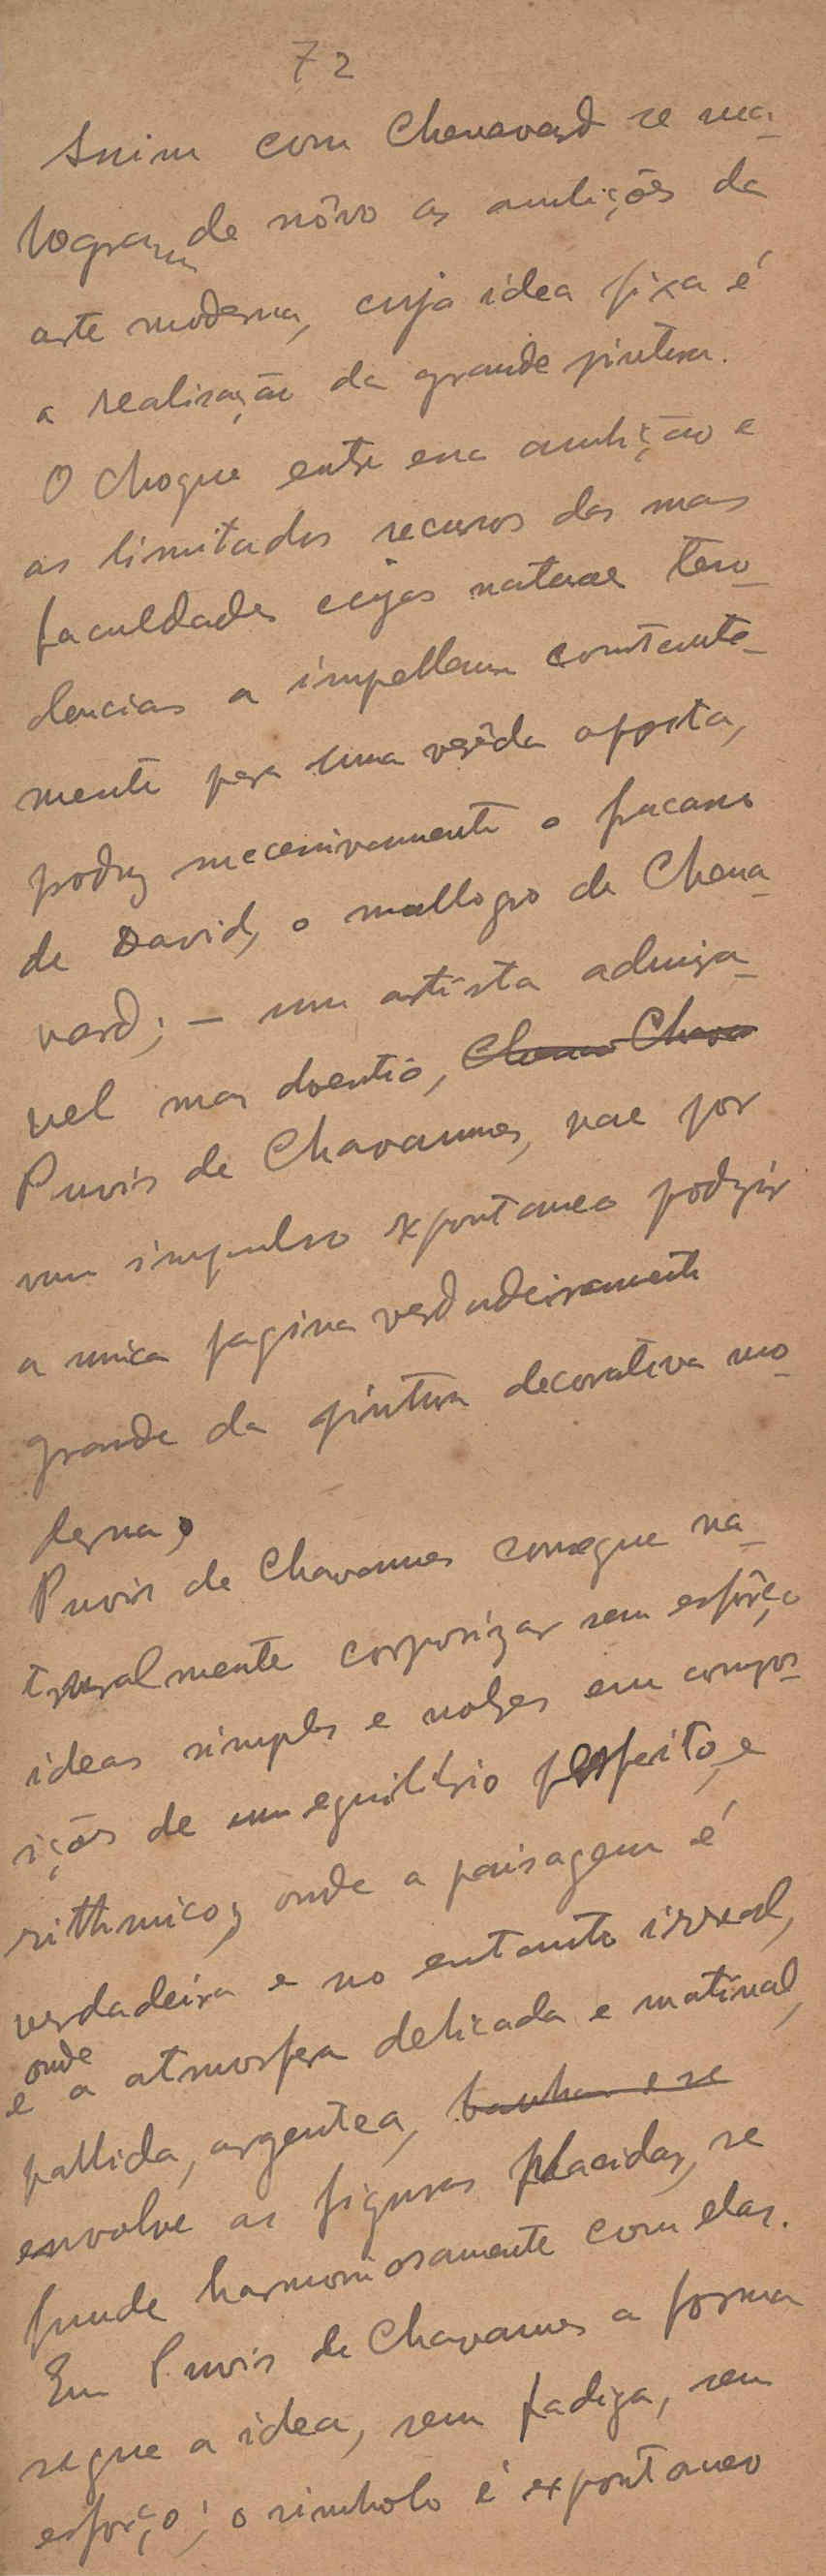 72
Assim com Chenavard se ma-
logram de nôvo as ambições da
arte moderna, cuja idea fixa é
a realisação da grande pintura.
O choque entre essa ambição e
os limitados recursos das mas
faculdades cujas naturaes ten-
dencias a impellem constante-
mente para uma verêda opposta,
produz successivamente o fracasso
de David, o mallogro de Chena-
vard; — um artista admira-
vel mas doentio, Chava Chava
Puvis de Chavannes, vae por
um impulso expontaneo produzir
a unica pagina verdadeiramente
grande da pintura decorativa mo-
derna,
Puvis de Chavannes consegue na-
turalmente corporizar sem esfôrço
ideas simples e nobres em compos-
ições de um equilibrio perfeito, e
rithmico; onde a paisagem é
verdadeira e no entanto irreal,
onde
e a atmosfera delicada e matinal,
pallida, argentea, banha e se
envolve as figuras placidas, se
funde harmoniosamente com elas.
Em Puvis de Chavannes a forma
segue a idea, sem fadiga, sem
esforço; o simbolo é expontaneo